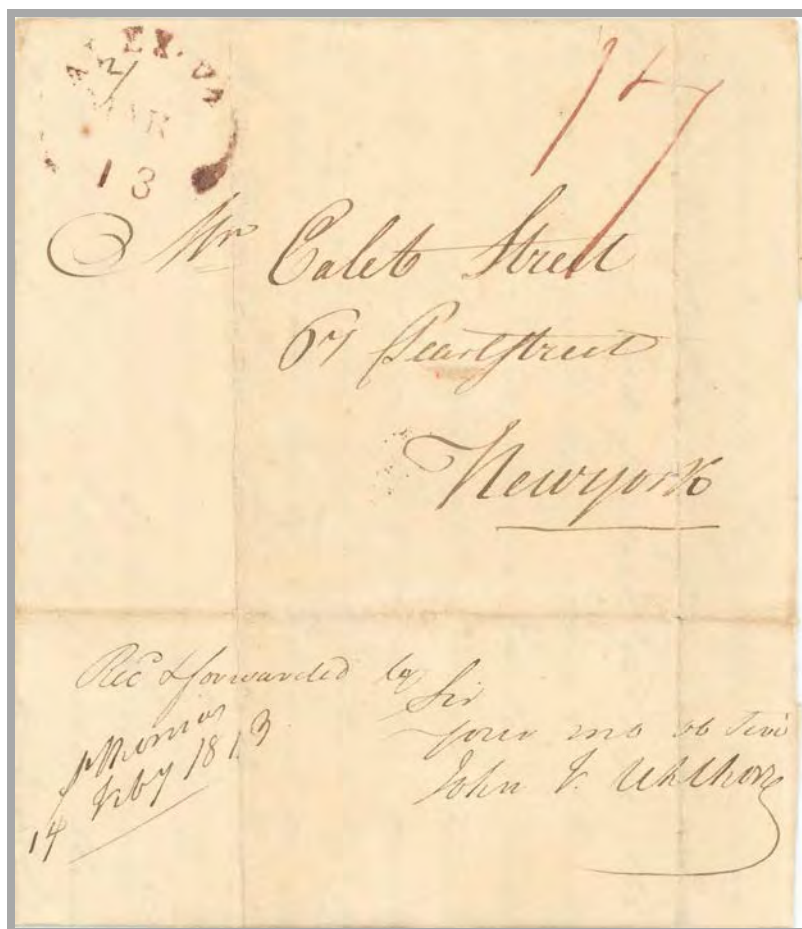 ALEX. DA
MAR
13
17
Mr Caleb Street
67 Pearl Street
Newyork
Recd & forwarded by
Sir
your mo ob Serv
John F.
St Thomas
14 Feby 1813